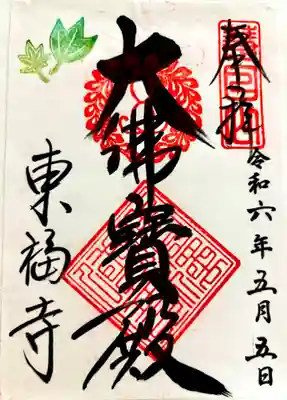 奉拝
令和六年五月五日
大佛寳殿
東福寺